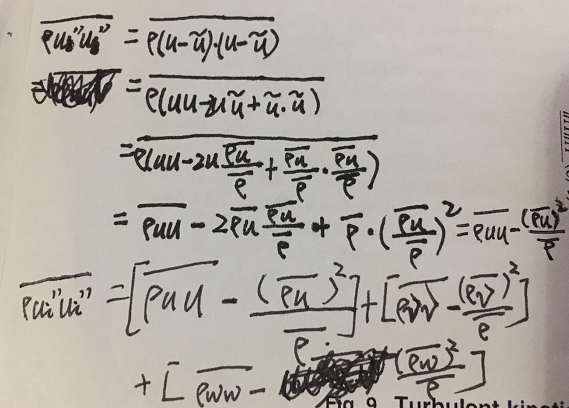 $\overline{\rho u_i'' u_i''} = \overline{\rho(u-\tilde{u})\cdot(u-\tilde{u})}$
$= \overline{\rho(uu-2u\tilde{u}+\tilde{u}\cdot\tilde{u})}$
$= \overline{\rho(uu-2u\frac{\overline{\rho u}}{\overline{\rho}}+\frac{\overline{\rho u}}{\overline{\rho}}\cdot\frac{\overline{\rho u}}{\overline{\rho}})}$
$= \overline{\rho uu}-2\overline{\rho u}\frac{\overline{\rho u}}{\overline{\rho}}+\overline{\rho}\cdot(\frac{\overline{\rho u}}{\overline{\rho}})^2=\overline{\rho uu}-\frac{(\overline{\rho u})^2}{\overline{\rho}}$
$\overline{\rho u_i'' u_i''} = [\overline{\rho uu}-\frac{(\overline{\rho u})^2}{\overline{\rho}}]+[\overline{\rho vv}-\frac{(\overline{\rho v})^2}{\overline{\rho}}]$
$+[\overline{\rho ww}-\frac{(\overline{\rho w})^2}{\overline{\rho}}]$
Fig. 9. Turbulent kineti